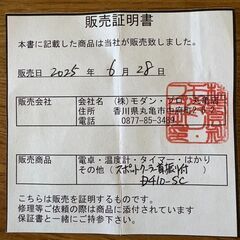 販売証明書
本書に記載した商品は当社が販売致しました。
販売日 2025 年 6 月 28 日
販売会社
会社名 (株)モダン・プロ 丸亀店
住所 香川県丸亀市中府町
電話 0877-85-348
販売商品
電卓・温度計・タイマー・はかり
その他 (スポットクーラー首振り付
D410-SC
こちらは販売を証明するものです。
修理等ご依頼の際は商品に添付されています
保証書と一緒にご提示ください。